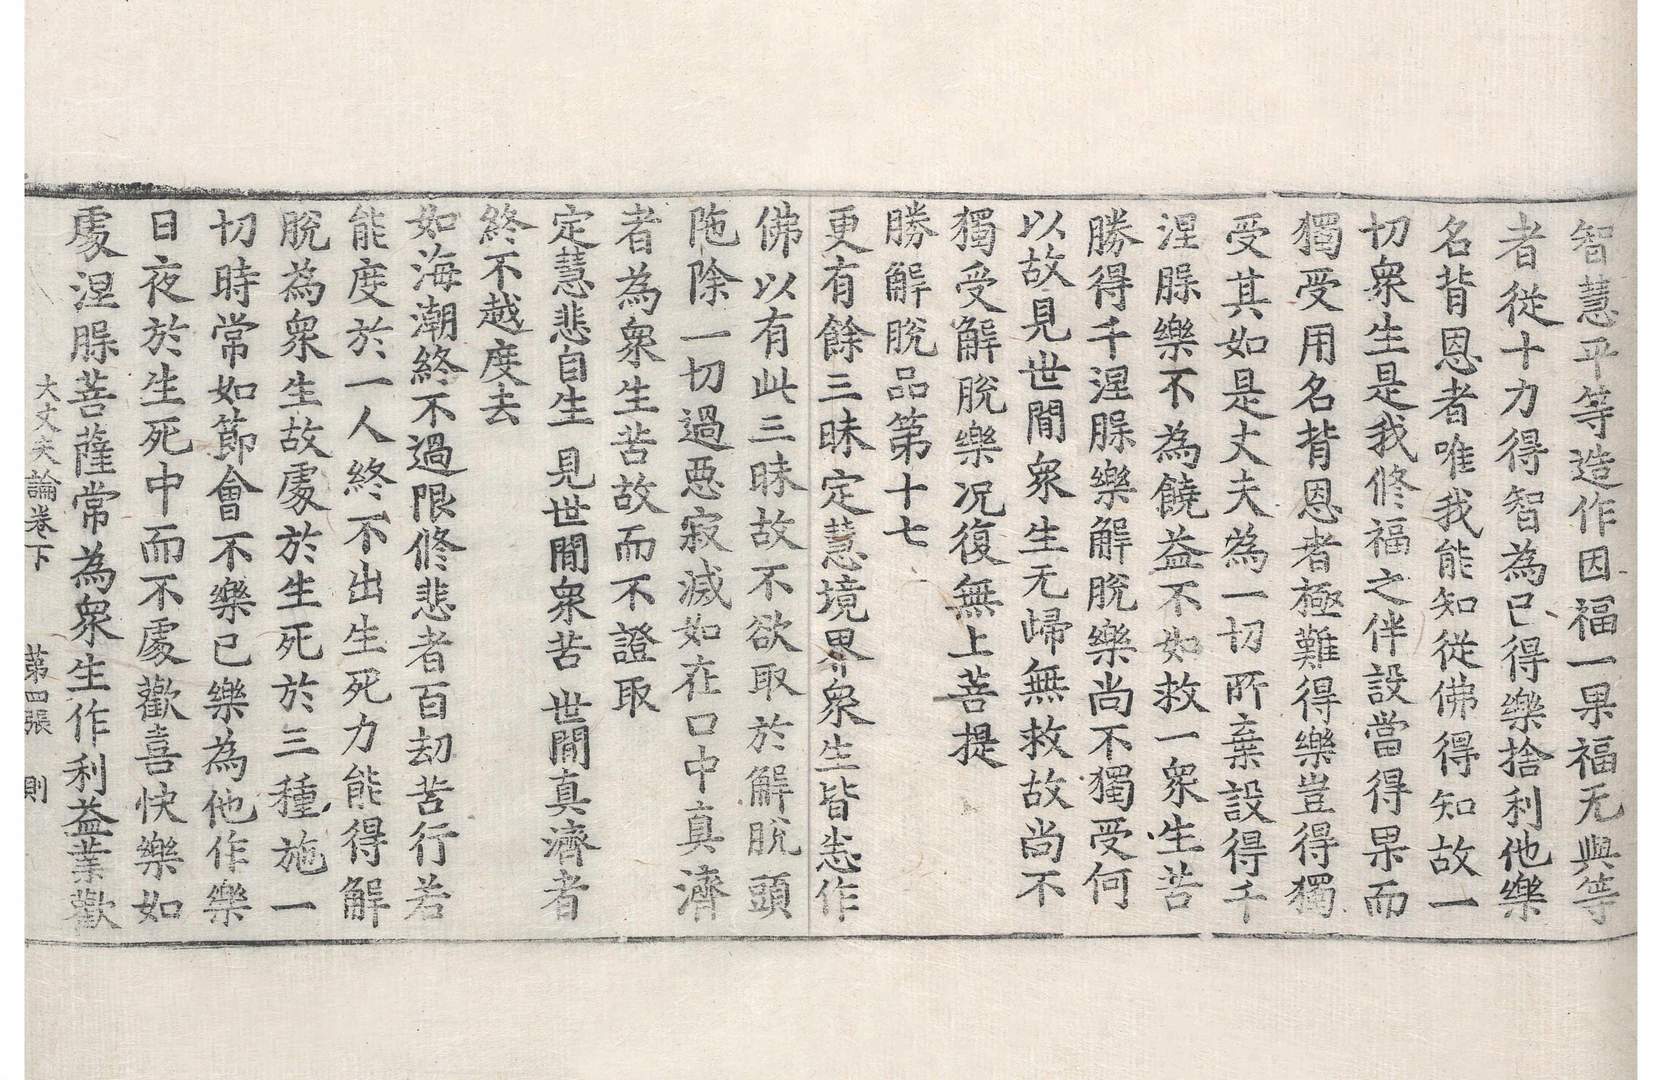 智慧平等造作因福一果福无與等
者從十力得智為己得樂捨利他樂
名背恩者唯我能知從佛得知故一
切衆生是我修福之伴設當得果而
獨受用名背恩者極難得樂豈得獨
受其如是丈夫為一切所棄設得千
涅槃樂不為饒益不如救一衆生苦
勝得千涅槃樂解脫樂尚不獨受何
以故見世間衆生无歸無救故尚不
獨受解脫樂况復無上菩提
勝解脫品第十七
更有餘三昧定慧境界衆生皆悉作
佛以有此三昧故不欲取於解脫頭
陁除一切過惡寂滅如在口中真濟
者為衆生苦故而不證取
定慧悲自生 見世間衆苦 世間真濟者
終不越度去
如海潮終不過限修悲者百劫苦行若
能度於一人終不出生死力能得解
脫為衆生故處於生死於三種施一
切時常如節會不樂已樂為他作樂
日夜於生死中而不處歡喜快樂如
處涅槃菩薩常為衆生作利益業歡
大丈夫論卷下 第四張 則